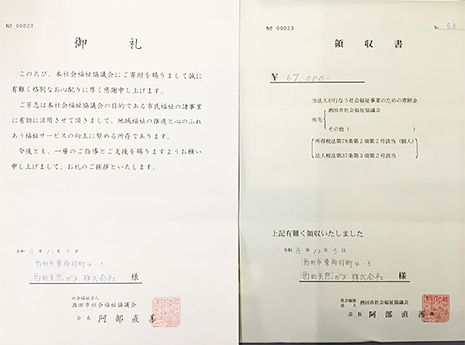 № 00023
御礼
このたび、本社会福祉協議会にご寄附を賜りまして誠に
有難く格別なお心配りに厚く感謝申し上げます。
ご芳志は本社会福祉協議会の目的である市民福祉の諸事業
に有効に活用させて頂きまして、地域福祉の推進と心のふれ
あう福祉サービスの向上に努める所存であります。
今後とも、一層のご指導とご支援を賜りますようお願い
申し上げまして、お礼のご挨拶といたします。
令和 元年 12月 5日
酒田市東両羽町4-5
酒田天然ガス株式会社 様
社会福祉法人
酒田市社会福祉協議会
会長 阿部直善
№ 00023
№ 53
領収書
¥ 67,000-
当法人が行なう社会福祉事業のための寄附金
酒田市社会福祉協議会
宛先
その他( )
所得税法第78条第2項第2号該当(個人)
法人税法第37条第3項第2号該当
上記有難く領収いたしました
令和 元年 12月 5日
酒田市東両羽町4-5
酒田天然ガス株式会社 様
社会福祉法人 酒田市社会福祉協議会
会長 阿部直善